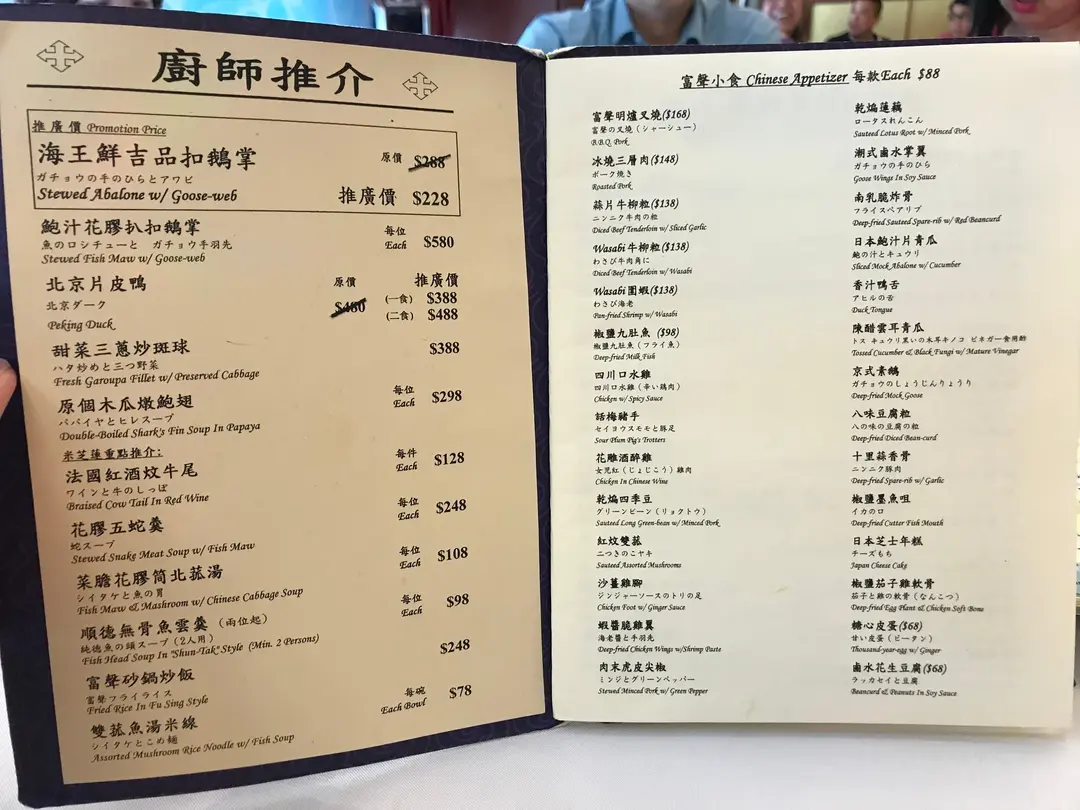 廚師推介
推廣價 Promotion Price
海王鮮吉品扣鵝掌 原價 $288
ガチョウの手のひらとアワビ
Stewed Abalone w/ Goose-web 推廣價 $228
鮑汁花膠扒扣鵝掌 每位 Each $580
魚のロシチューと ガチョウ手羽先
Stewed Fish Maw w/ Goose-web
北京片皮鴨 原價 $480 推廣價
北京ダーク (一食) $388
Peking Duck (二食) $488
甜菜三蔥炒斑球 $388
ハタ炒めと三つ野菜
Fresh Garoupa Fillet w/ Preserved Cabbage
原個木瓜燉鮑翅 每位 Each $298
パパイヤとヒレスープ
Double-Boiled Shark's Fin Soup In Papaya
米芝蓮重點推介:
法國紅酒炆牛尾 每件 Each $128
ワインと牛のしっぽ
Braised Cow Tail In Red Wine
花膠五蛇羹 每位 Each $248
蛇スープ
Stewed Snake Meat Soup w/ Fish Maw
菜膽花膠筒北菇湯 每位 Each $108
シイタケと魚の胃
Fish Maw & Mashroom w/ Chinese Cabbage Soup
順德無骨魚雲羹 (兩位起) 每位 Each $98
純徳魚の頭スープ (2人用)
Fish Head Soup In "Shun-Tak" Style (Min. 2 Persons)
富聲砂鍋炒飯 $248
富聲フライライス
Fried Rice In Fu Sing Style
雙菰魚湯米線 每碗 Each Bowl $78
シイタケとこめ麺
Assorted Mushroom Rice Noodle w/ Fish Soup
富聲小食 Chinese Appetizer 每款Each $88
富聲明爐叉燒($168)
富聲の叉燒 (シャーシュー)
B.B.Q. Pork
冰燒三層肉($148)
ポーク焼き
Roasted Pork
蒜片牛柳粒($138)
ニンニク牛肉の粒
Diced Beef Tenderloin w/ Sliced Garlic
Wasabi牛柳粒($138)
わさび牛肉角に
Diced Beef Tenderloin w/ Wasabi
Wasabi團蝦($138)
わさび海老
Pan-fried Shrimp w/ Wasabi
椒鹽九肚魚 ($98)
椒鹽九肚魚 (フライ魚)
Deep-fried Milk Fish
四川口水雞
四川口水雞 (辛い鶏肉)
Chicken w/ Spicy Sauce
話梅豬手
セイヨウスモモと豚足
Sour Plum Pig's Trotters
花雕酒醉雞
女児紅 (じょじこう) 雞肉
Chicken In Chinese Wine
乾煸四季豆
グリーンビーン (リョクトウ)
Sauteed Long Green-bean w/ Minced Pork
紅炆雙菰
二つきのこヤキ
Sauteed Assorted Mushrooms
沙薑雞腳
ジンジャーソースのトリの足
Chicken Foot w/ Ginger Sauce
蝦醬脆雞翼
海老醬と手羽先
Deep-fried Chicken Wings w/Shrimp Paste
肉末虎皮尖椒
ミンジとグリーンペッパー
Stewed Minced Pork w/ Green Pepper
乾煸蓮藕
ロータスれんこん
Sauteed Lotus Root w/ Minced Pork
潮式鹵水掌翼
ガチョウの手のひら
Goose Wings In Soy Sauce
南乳脆炸骨
フライスペアリブ
Deep-fried Sauteed Spare-rib w/ Red Beancurd
日本鮑汁片青瓜
鮑の汁とキュウリ
Sliced Mock Abalone w/ Cucumber
香汁鴨舌
アヒルの舌
Duck Tongue
陳醋雲耳青瓜
トス キュウリ黒いの木耳キノコ ビネガー食用酢
Tossed Cucumber & Black Fungi w/ Mature Vinegar
京式素鵝
ガチョウのしょうじんりょうり
Deep-fried Mock Goose
八味豆腐粒
八の味の豆腐の粒
Deep-fried Diced Bean-curd
十里蒜香骨
ニンニク豚肉
Deep-fried Spare-rib w/ Garlic
椒鹽墨魚咀
イカの口
Deep-fried Cutter Fish Mouth
日本芝士年糕
チーズもち
Japan Cheese Cake
椒鹽茄子雞軟骨
茄子と雞の軟骨 (なんこつ)
Deep-fried Egg Plant & Chicken Soft Bone
糖心皮蛋($68)
甘い皮蛋 (ピータン)
Thousand-year-egg w/ Ginger
鹵水花生豆腐($68)
ラッカセイと豆腐
Beancurd & Peanuts In Soy Sauce